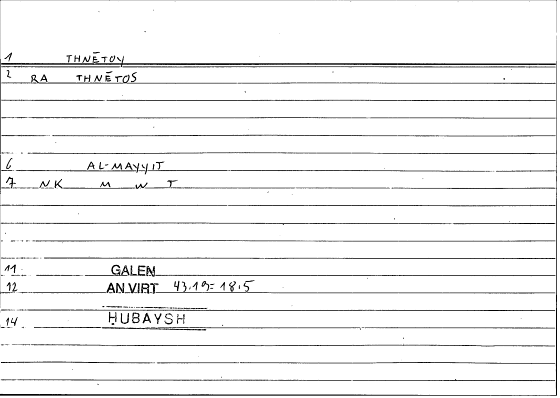 1 THNĒTOY
2 RA THNĒTOS
6 AL-MAYYIT
7 NK M W T
11 GALEN
12 AN.VIRT 43.19 = 18.5
14 ḤUBAYSH